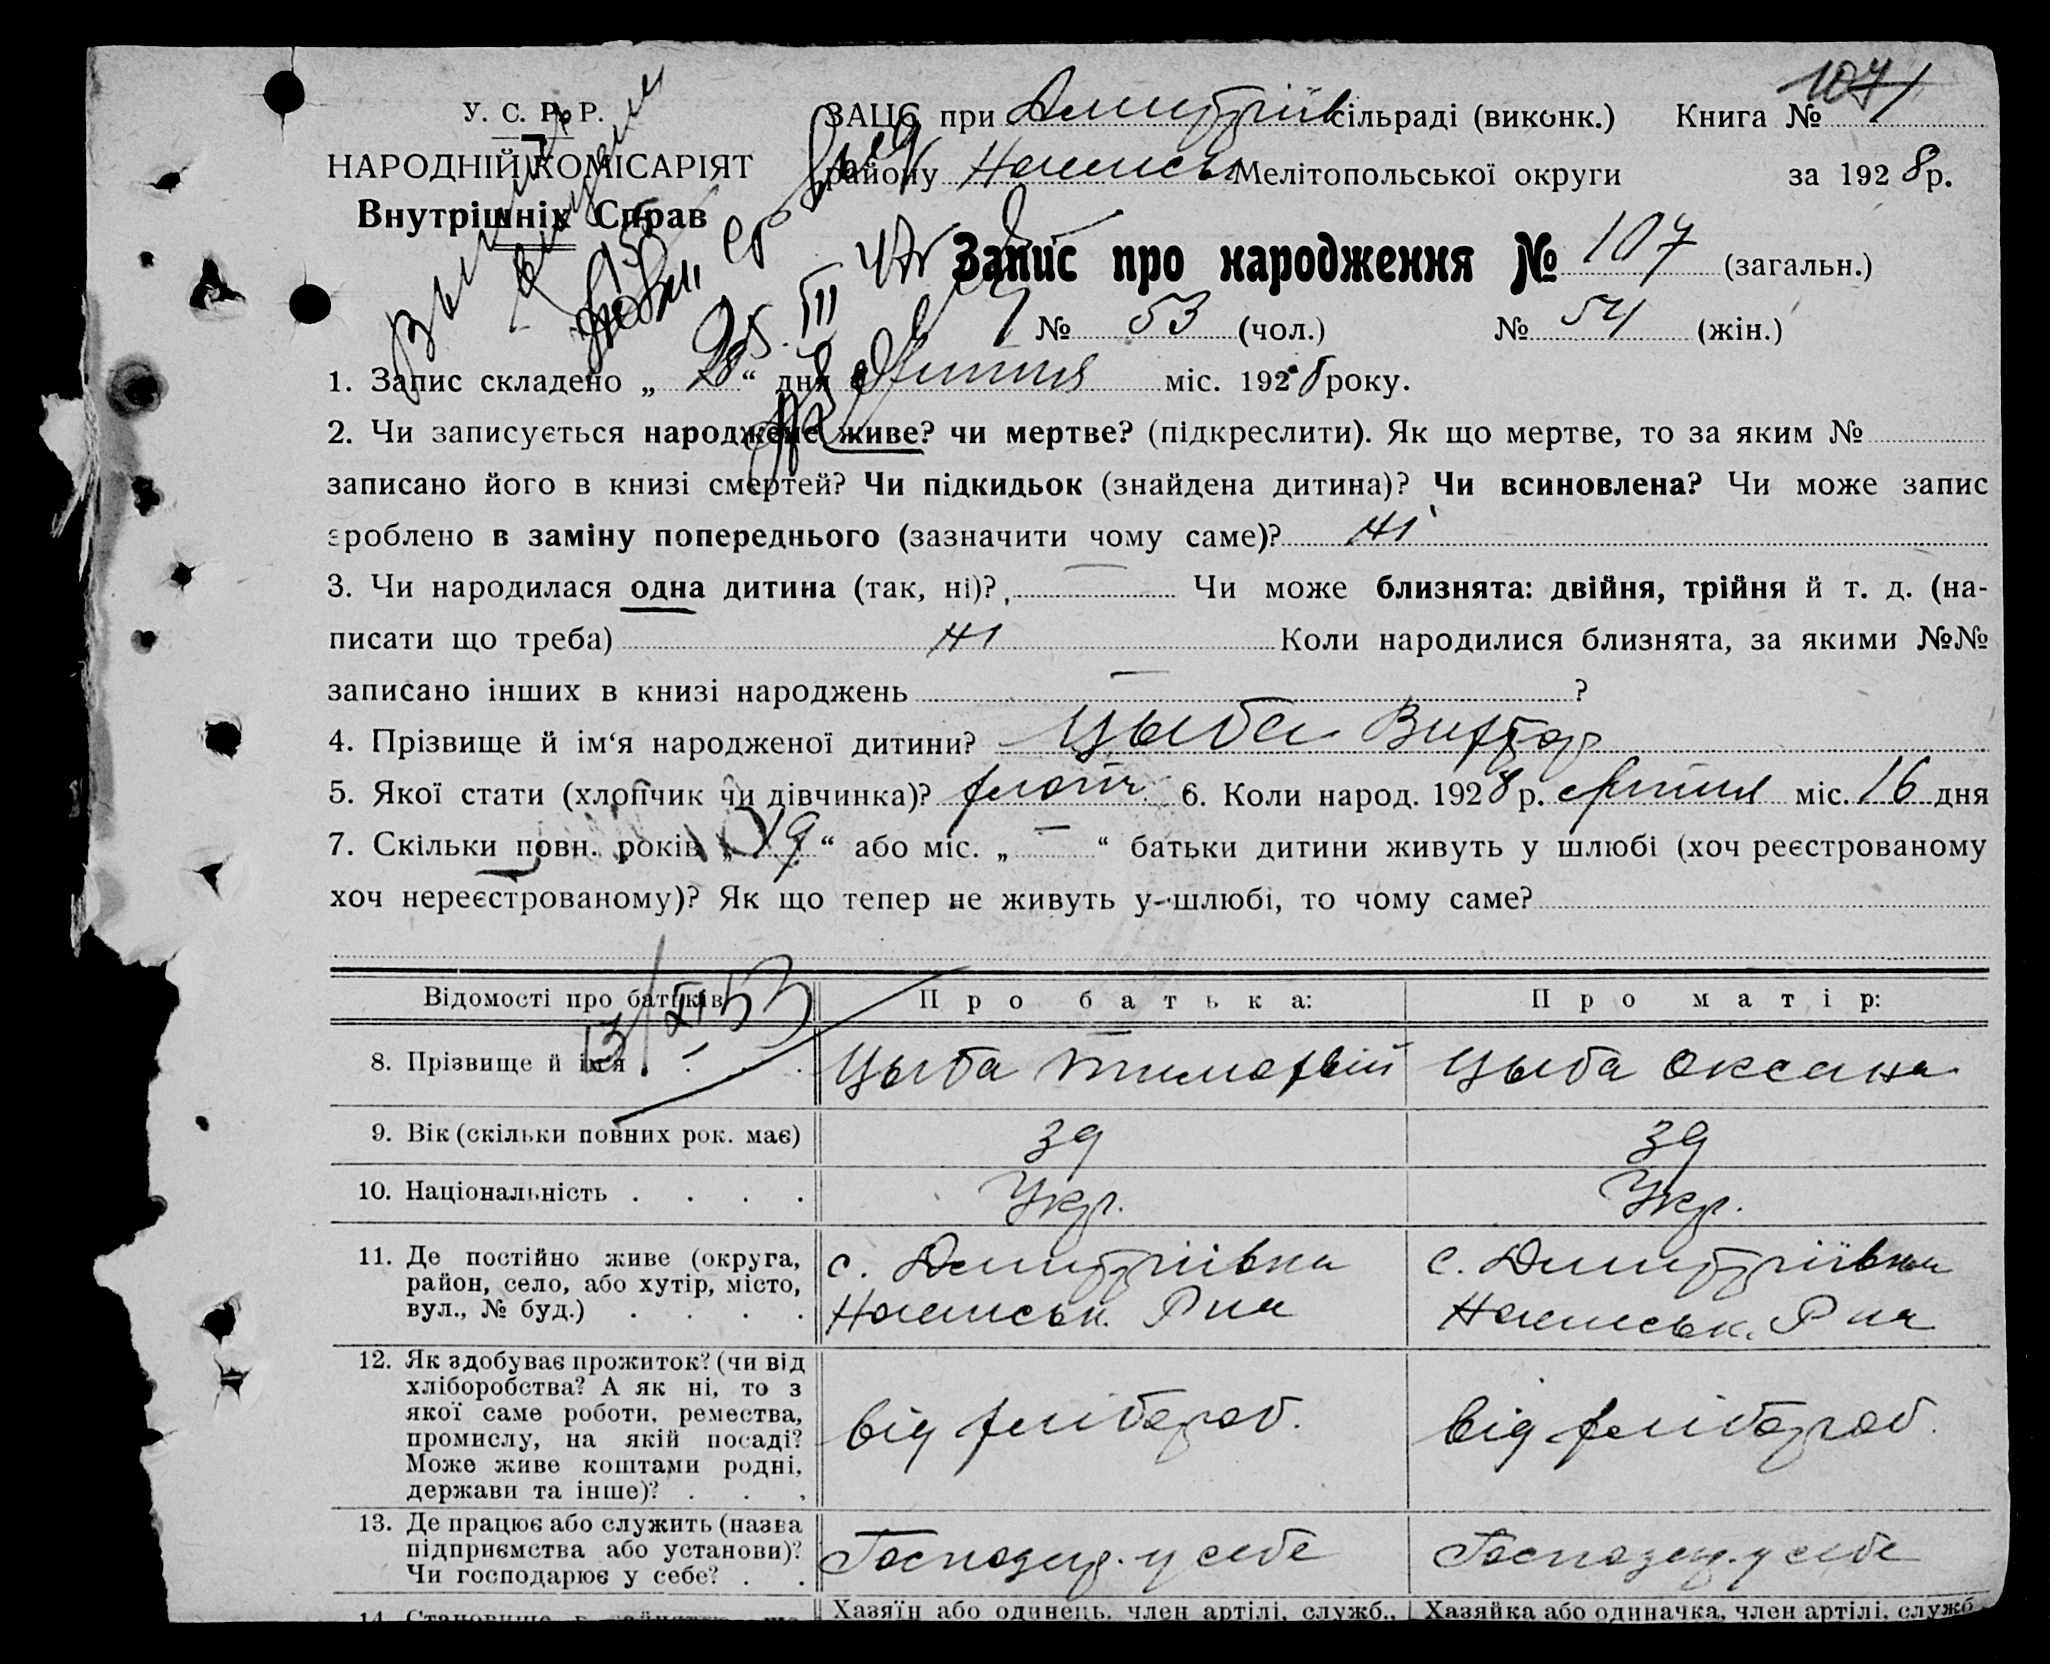 У. С. Р. Р.
НАРОДНІЙ КОМІСАРІЯТ
Внутрішніх Справ
ЗАЦС при Дмитріїв сільраді (виконк.) Книга № 1
107
району Мелітопольської округи за 1928 р.
Запис про народження № 107 (загальн.)
№ 53 (чол.) № 54 (жін.)
25 III 47г
1. Запис складено „ “ дня міс. 1928 року.
2. Чи записується народжене живе? чи мертве? (підкреслити). Як що мертве, то за яким №
записано його в книзі смертей? Чи підкидьок (знайдена дитина)? Чи всиновлена? Чи може запис
зроблено в заміну попереднього (зазначити чому саме)? Ні
3. Чи народилася одна дитина (так, ні)? — Чи може близнята: двійня, трійня й т. д. (на-
писати що треба) Ні Коли народилися близнята, за якими №№
записано інших в книзі народжень — ?
4. Прізвище й ім‘я народженої дитини? Цыба Виктор
5. Якої стати (хлопчик чи дівчинка)? хлопч. 6. Коли народ. 1928 р. міс. 16 дня
7. Скільки повн. років „ 19 “ або міс. „ — “ батьки дитини живуть у шлюбі (хоч реєстрованому
хоч нереєстрованому)? Як що тепер не живуть у шлюбі, то чому саме?
13/XI 53
Відомості про батьків Про батька: Про матір:
8. Прізвище й ім‘я . . . Цыба Тимофвій Цыба Оксана
9. Вік (скільки повних рок. має) 39 39
10. Національність . . . . Укр. Укр.
11. Де постійно живе (округа,
район, село, або хутір, місто,
вул., № буд.) . . . .
с. Дмитріівка
Р на
с. Дмитріївка
Р на
12. Як здобуває прожиток? (чи від
хліборобства? А як ні, то з
якої саме роботи, ремества,
промислу, на якій посаді?
Може живе коштами родні,
держави та інше)? . . .
від хлібороб.
від хлібороб.
13. Де працює або служить (назва
підприємства або установи)?
Чи господарює у себе? . .
Господар. у себе
Господар. у себе
14. Становище в
Хазяїн або одинець, член артілі, служб., Хазяйка або одиначка, член артілі, служб